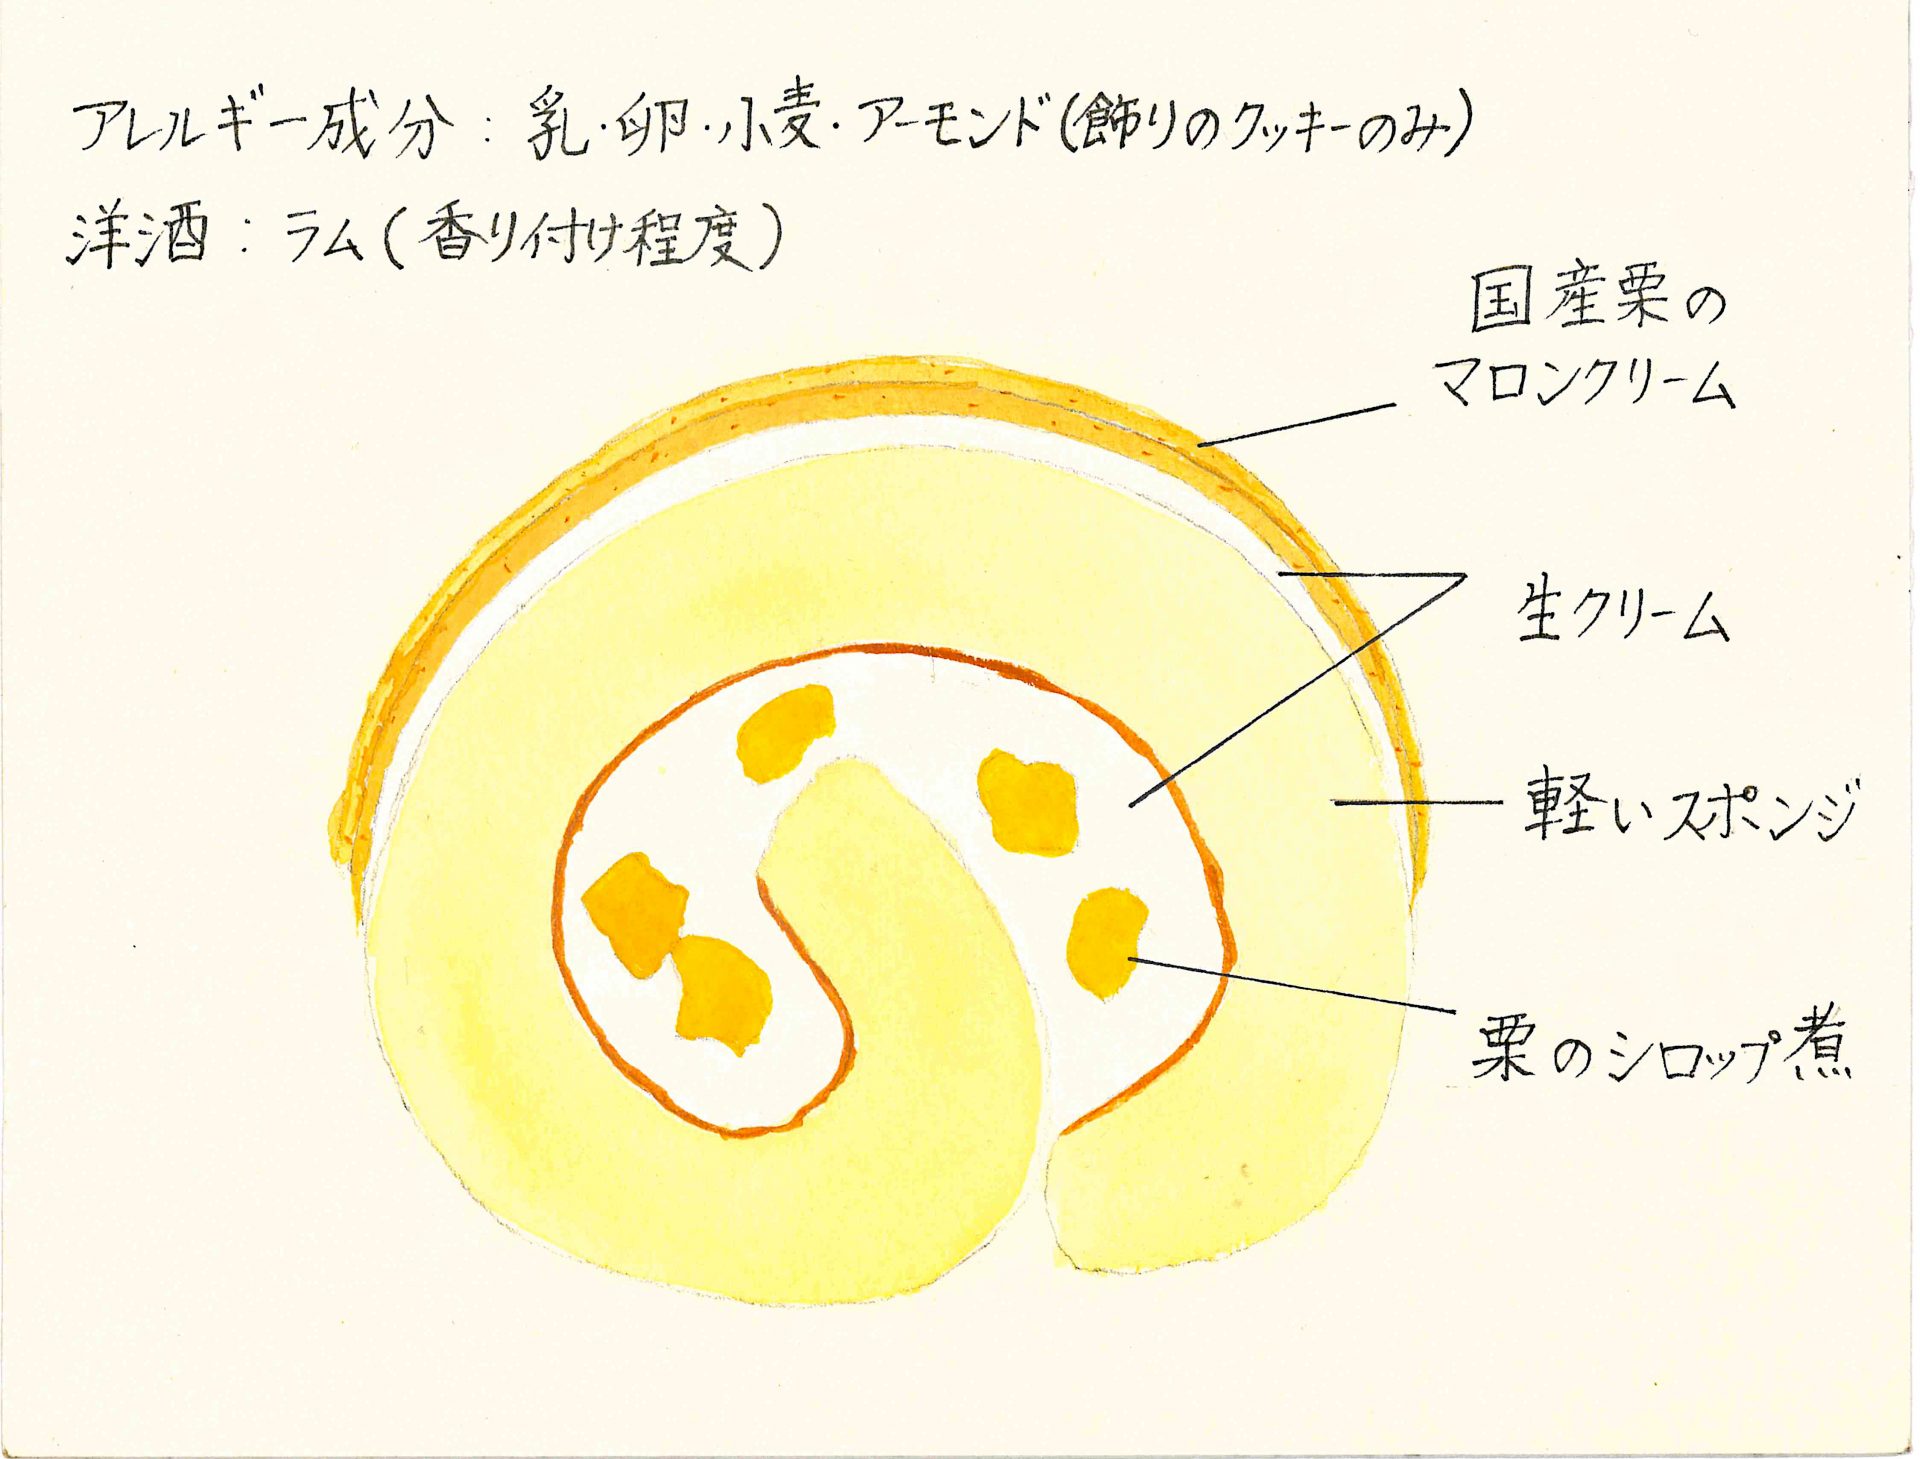 アレルギー成分：乳・卵・小麦・アーモンド(飾りのクッキーのみ)
洋酒：ラム(香り付け程度)
国産栗の
マロンクリーム
生クリーム
軽いスポンジ
栗のシロップ煮